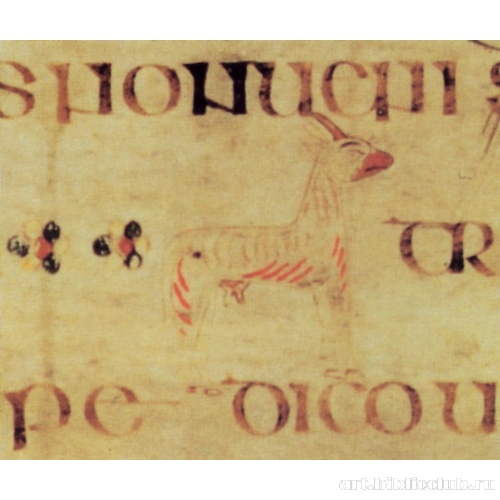 s non ueni s
tr
pe dico u
art.biblicclub.ru